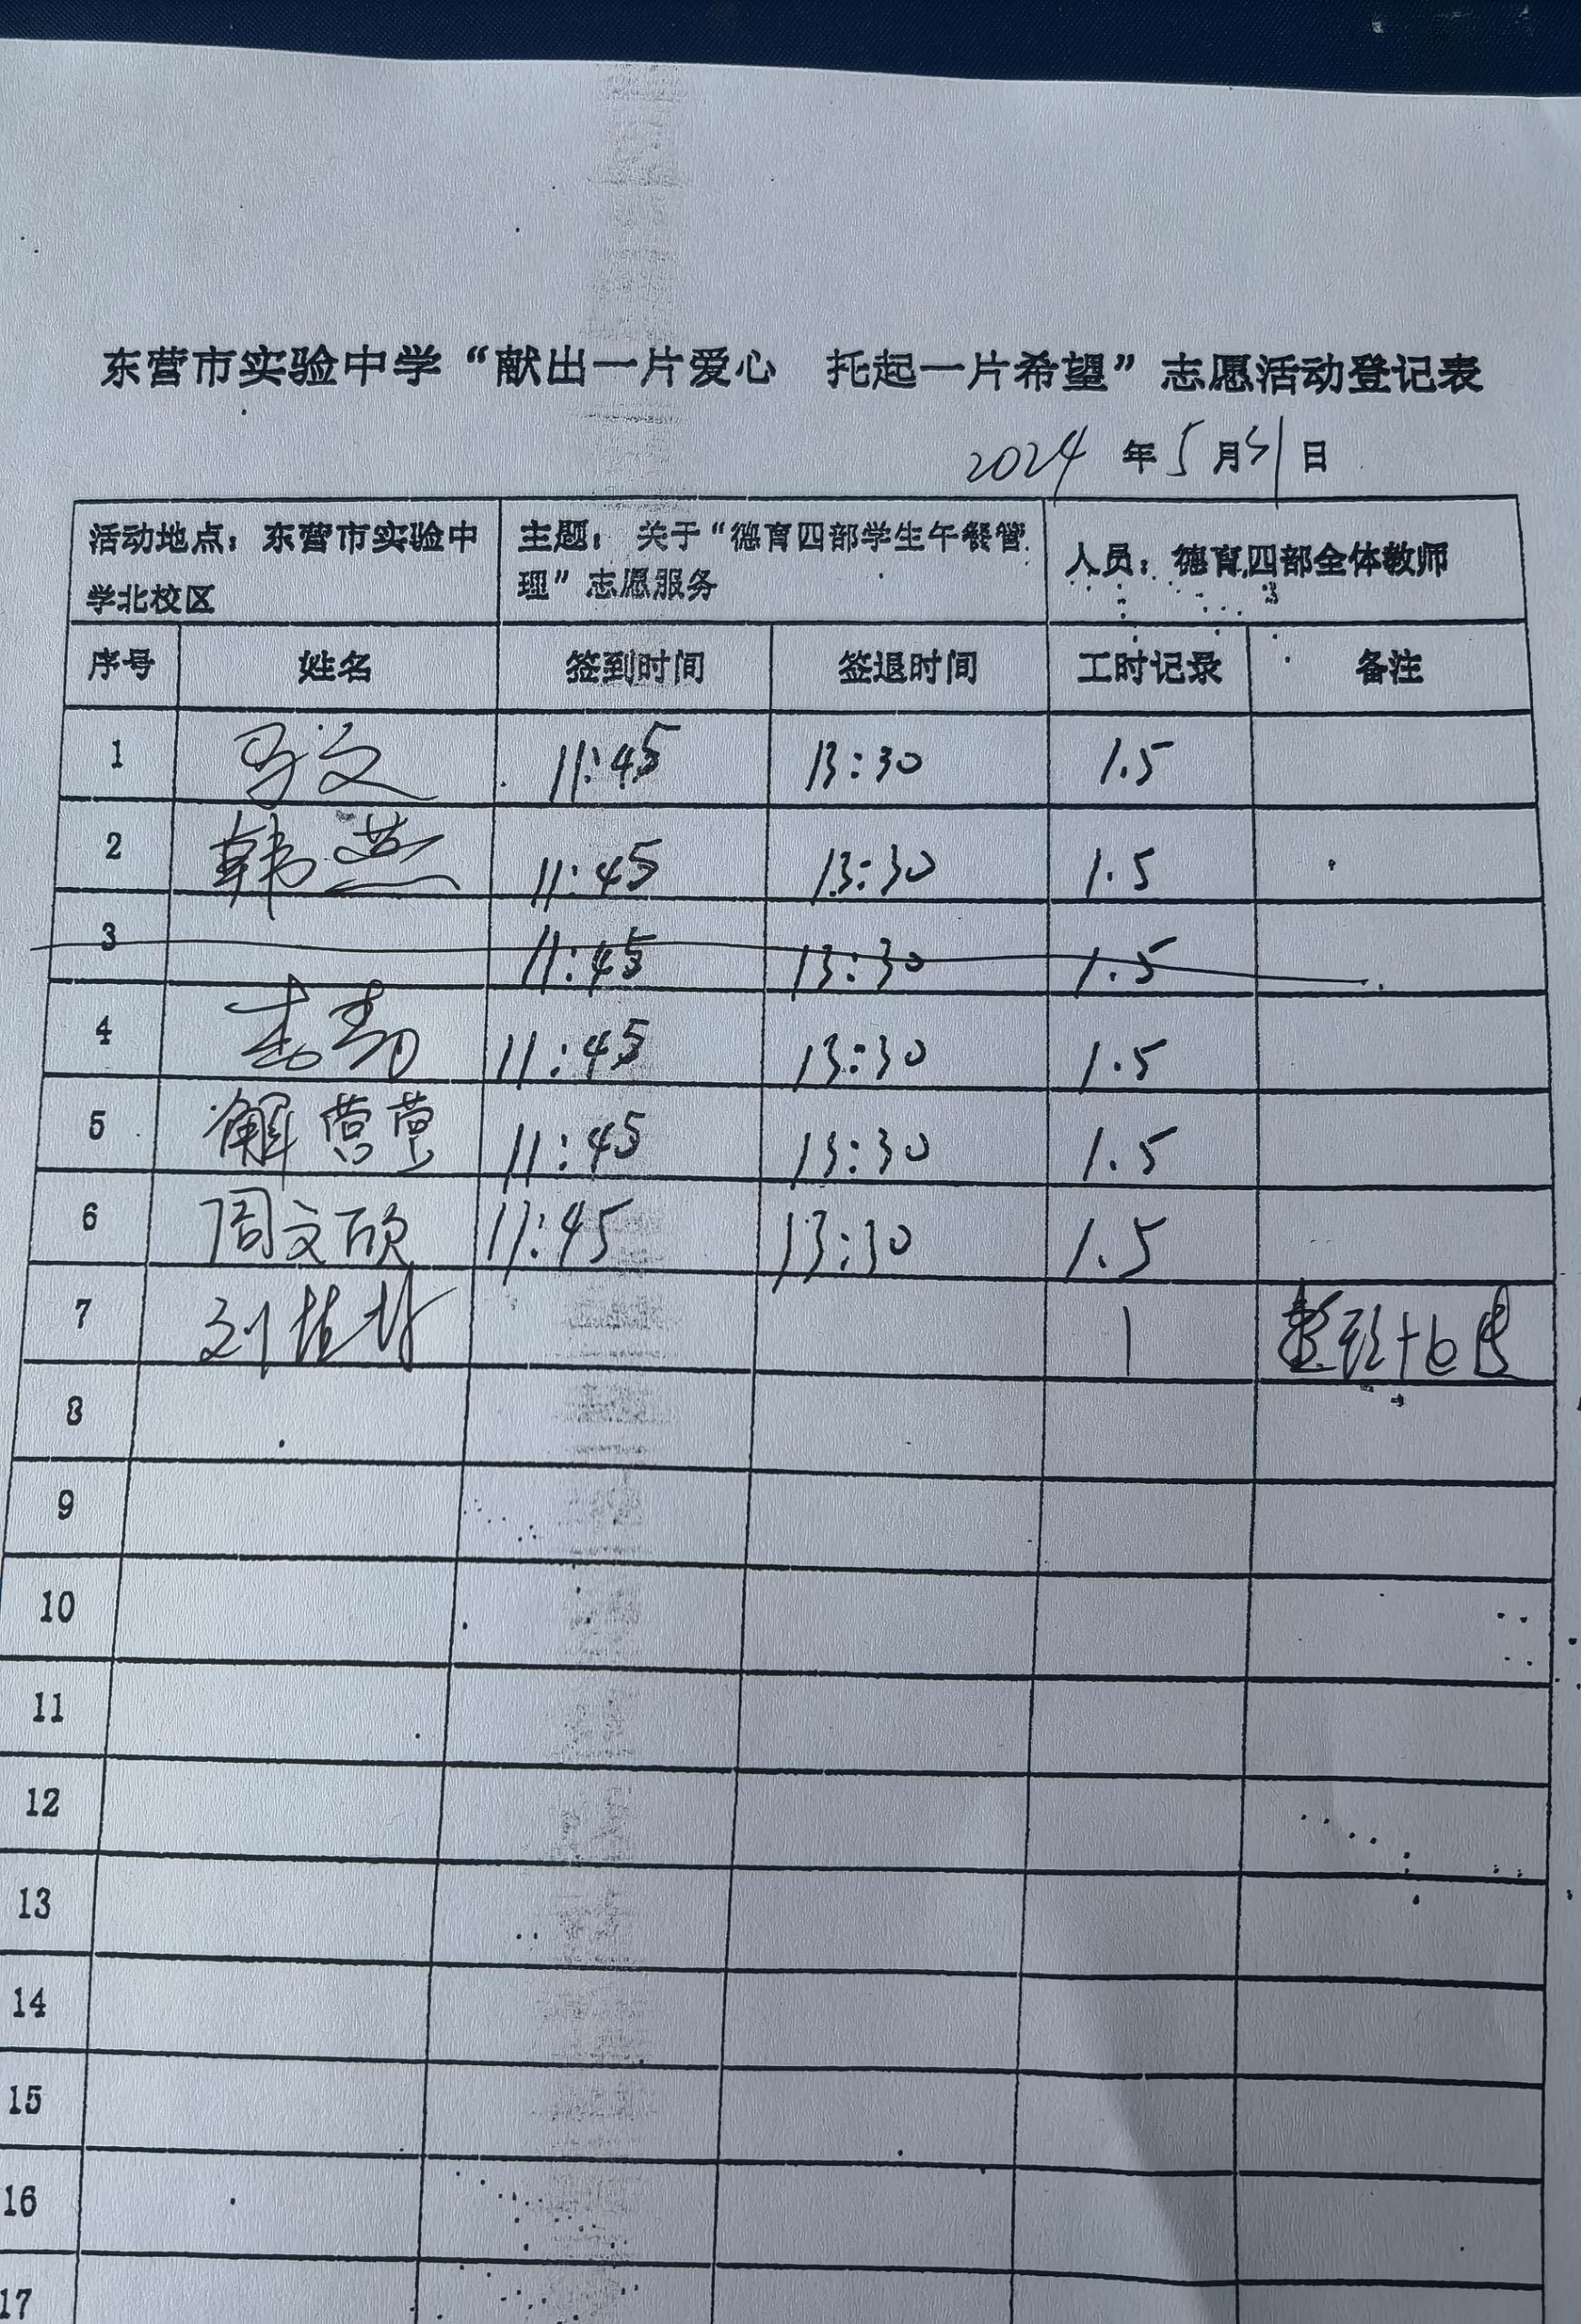 东营市实验中学“献出一片爱心 托起一片希望”志愿活动登记表
2024 年 5 月 31 日
活动地点：东营市实验中学北校区 主题：关于“德育四部学生午餐管理”志愿服务 人员：德育四部全体教师
序号 姓名 签到时间 签退时间 工时记录 备注
1 马文 11:45 13:30 1.5
2 韩燕 11:45 13:30 1.5
3 11:45 13:30 1.5
4 11:45 13:30 1.5
5 解营营 11:45 13:30 1.5
6 周文欣 11:45 13:30 1.5
7 刘 1
8
9
10
11
12
13
14
15
16
17